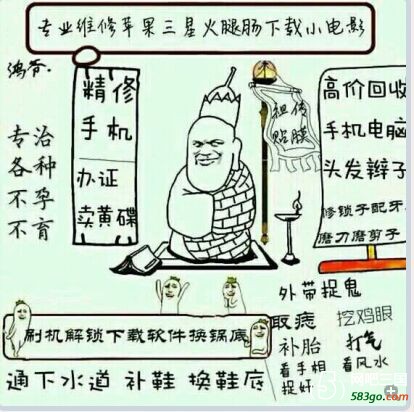 专业维修苹果三星火腿肠下载小电影
鸿爷.
精修
手机
办证
卖黄碟
专治
各种
不孕
不育
祖传
贴膜
高价回收
手机电脑
头发辫子
修锁子配牙
磨刀磨剪子
外带捉鬼
取痣
挖鸡眼
补胎
打气
看手相
看风水
捉奸
刷机解锁下载软件换锅底
通下水道 补鞋 换鞋底
583go.com